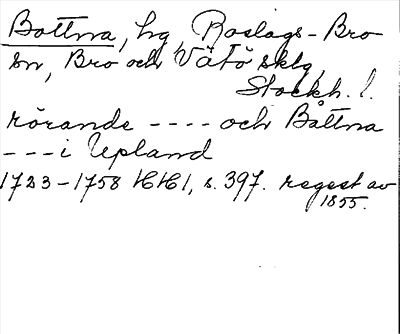 Bottna, hg, Roslags-Bro
sn, Bro och Vätö sklg,
Stockh. l.
rörande ---- och Båttna
--- i Upland
1723-1758 HH1, s. 397. regest av
1855.